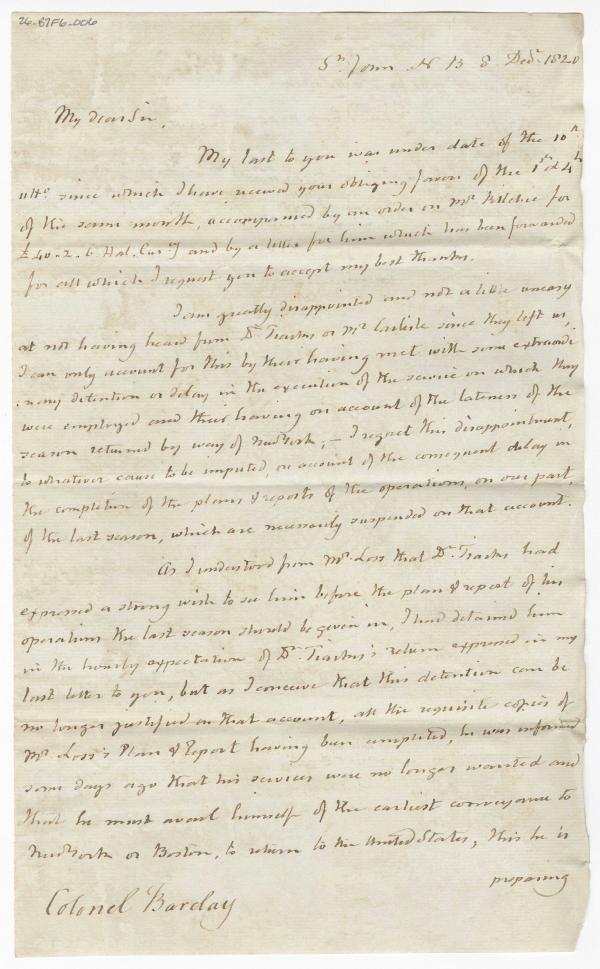 26-87F6-006
Sn. John N B 8 Decr. 1820
My dear Sir,
My last to you was under date of the 10th
ulto. since which I have received your obliging favors of the 1st & 4th
of the same month, accompanied by an order on Mr. Ritchie for
£40..2..6 Hal. Curry and by a letter for him which has been forwarded
for all which I request you to accept my best thanks.
I am greatly disappointed and not a little uneasy
at not having heard from Dr. Tiarks or Mr. Carlisle since they left us,
I can only account for this by their having met with some extraordi
nary detention or delay in the execution of the service on which they
were employed and their having on account of the lateness of the
season returned by way of New York; — I regret this disappointment,
to whatever cause to be imputed, on account of the consequent delay in
the completion of the plans & reports of the operations, on our part,
of the last season, which are necessarily suspended on that account.
As I understood from Mr. Loss that Dr. Tiarks had
expressed a strong wish to see him before the plan & report of his
operations the last season should be given in, I had detained him
in the hourly expectation of Dr. Tiarks's return expressed in my
last letter to you, but as I conceive that this detention can be
no longer justified on that account, all the requisite copies of
Mr. Loss's Plan & Report having been completed, he was informed
some days ago that his services were no longer wanted and
that he must avail himself of the earliest conveyance to
New York or Boston, to return to the United States; this he is
preparing
Colonel Barclay